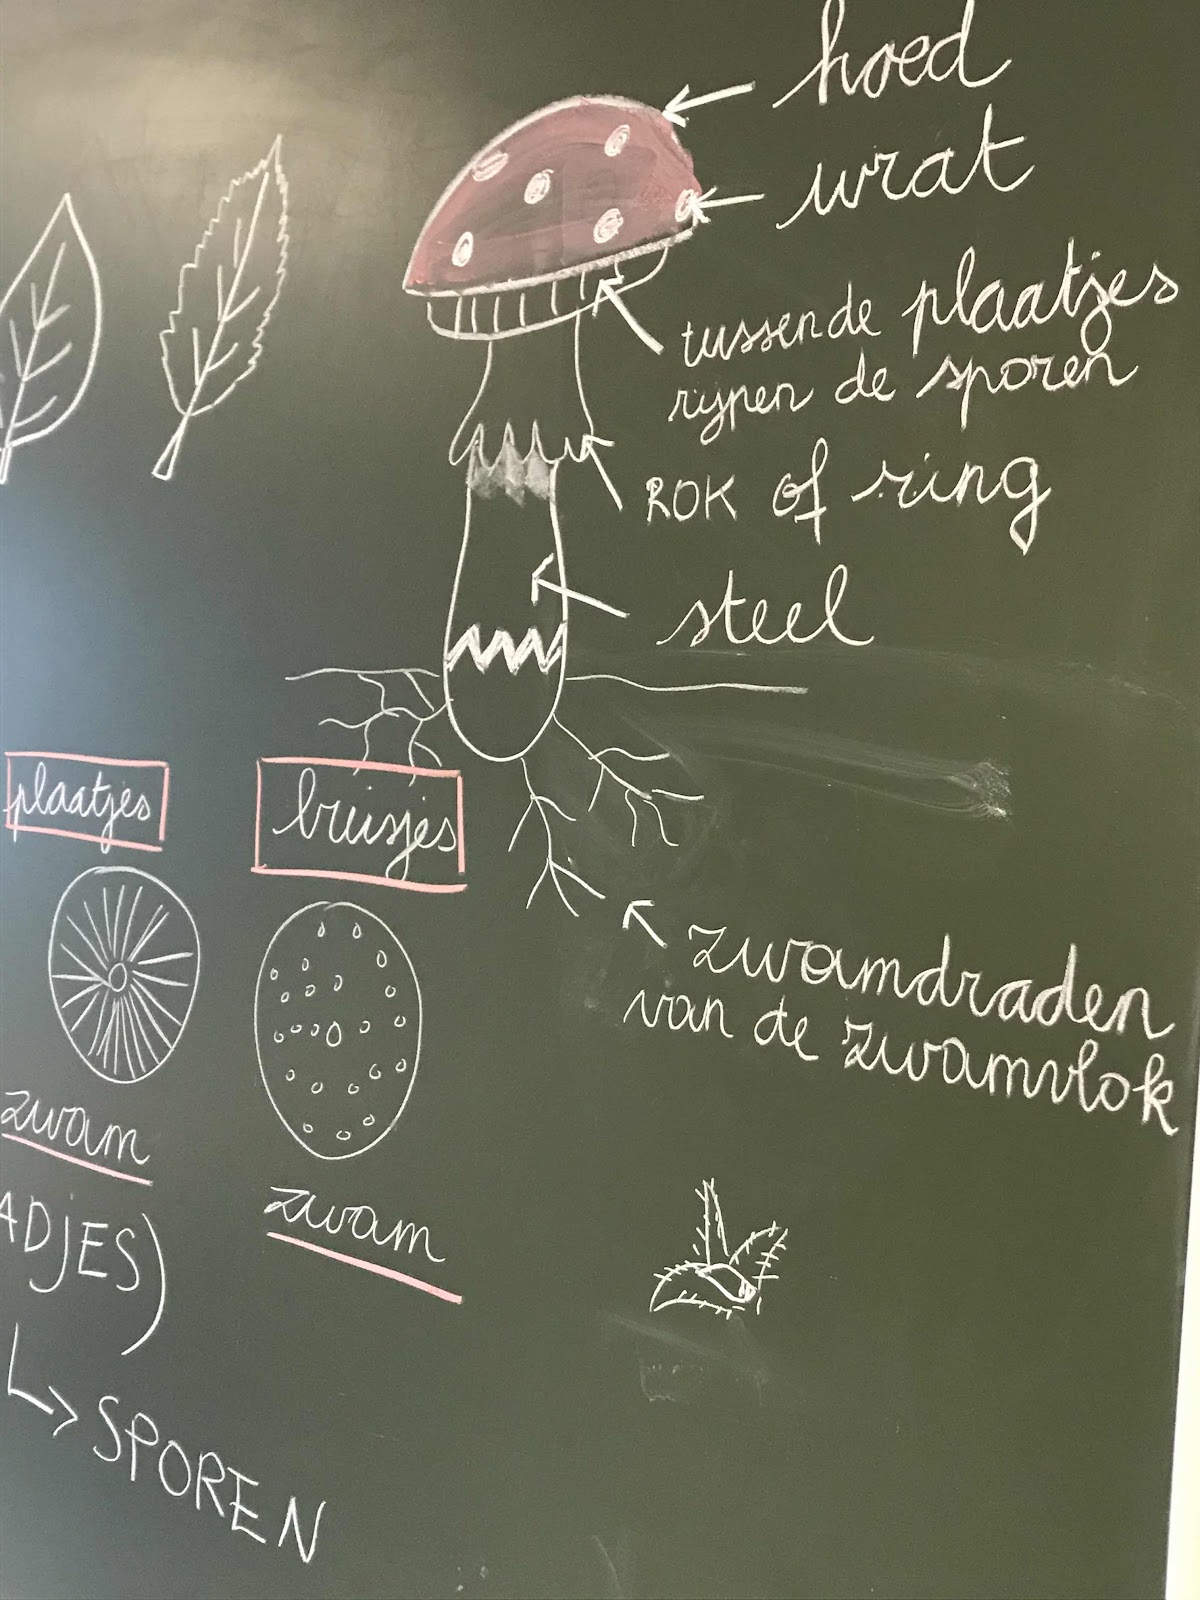 hoed
wrat
tussen de plaatjes
rijpen de sporen
ROK of ring
steel
zwamdraden
van de zwamvlok
plaatjes
buisjes
zwam
zwam
ADJES)
↳ SPOREN